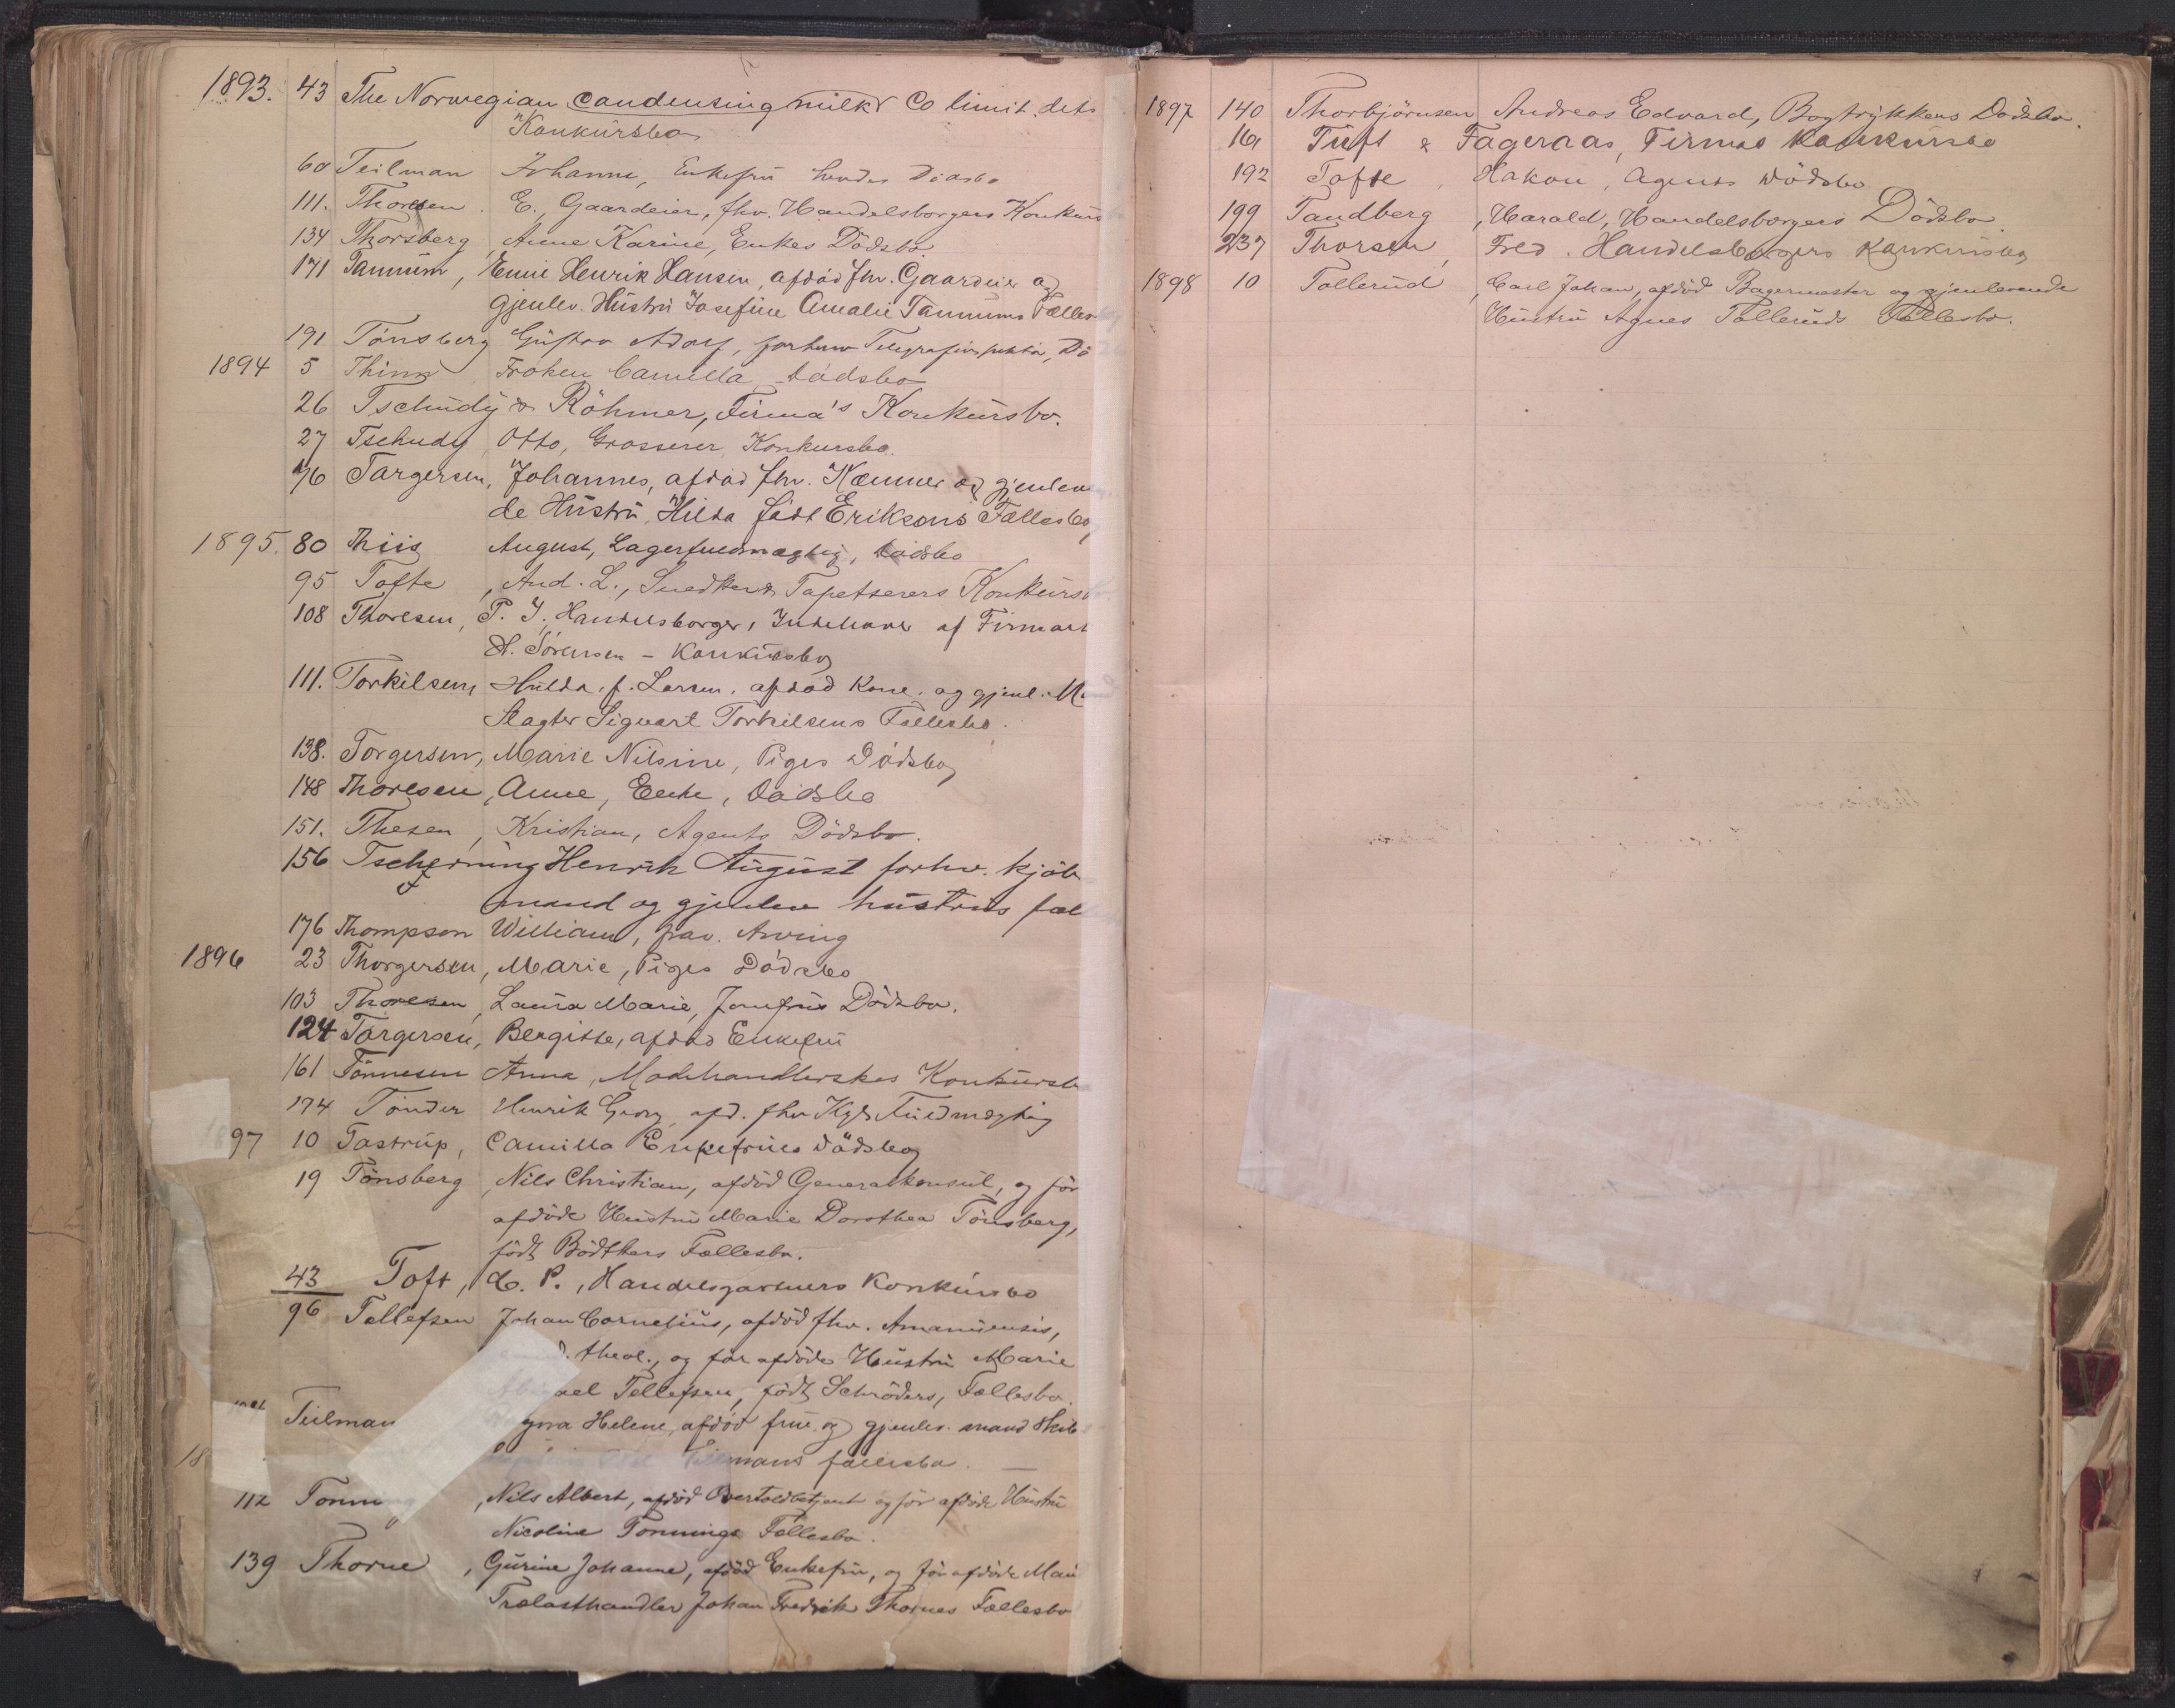 1893. 43 The Norwegian Candensing milk Co limit. dets
Konkursbo
60 Teilman Johanne, Enkefru hendes Dødsbo
111. Thoresen E., Gaardeier, fhv. Handelsborgers Konkurs
134 Thorsberg, Anne Karine, Enkes Dödsbo
171 Tannum, Emil Henrik Hansen, afdød fhv. Gaardeier og
gjenlev. Hustru Josefine Amalie Tannums Fælles
191 Tönsberg Gustav Adolf, forhenv Telegrafinspektör, Dö
1894 5 Frøken Camilla Dödsbo
26 Tschudy & Röhmer, Firma's Konkursbo.
27 Tschudy, Otto, Grosserer, Konkursbo.
76 Torgersen, Johannes, afdød fhv. Kæmner og gjenleven
de Hustru, Hilda født Eriksens Fællesbo
1895. 80 Thiis August, Lagerfuldmægtig, Dødsbo
95 Tofte, And. L., Snedker & Tapetserers Konkursb
108 Thoresen, P. J. Handelsborger, Indehaver af Firmaet
A. Sörensen - Konkursbo
111. Torkilsen, Hulda f. Larsen, afdød Kone og gjenl. M
Slagter Sigvart Torkilsens Fællesbo.
138. Torgersen, Marie Nilsine, Piges Dødsbo
148 Thoresen, Anne, Enke, Dødsbo
151. Thesen, Kristian, Agents Dödsbo.
156 Tscherning Henrik August forhv. kjöb
mand og gjenlev hustrus fæl
176 Thompson William, frav. Arving
1896 23 Thorgersen, Marie, Piges Dødsbo
103 Thoresen, Laura Marie, Jomfrus Dödsbo.
124 Torgersen, Bergitte, afdød Enkefru
161 Tönnesen Anna, Modehandlerskes Konkursb
174 Tönder Henrik Georg, afd. fhv Kgl. Fuldmægtig
97 10 Tostrup, Camilla Enkefrues Dödsbo
19 Tönsberg, Nils Christian, afdöd Generalkonsul, og för
afdöde Hustru Marie Dorothea Tönsberg,
födt Bödtkers Fællesbo.
43 Toft, C. P., Handelsgartners Konkursbo
96 Tellefsen Johan Cornelius, afdöd fhv. Amanuensis,
theol., og för afdöde Hustru Marie
ael Tellefsen, födt Schröders, Fællesbo.
Teilman gna Helene, afdød frue og gjenlev. mand Skib
mans fællesbo.
18
112 Tonning, Nils Albert, afdöd Overtoldbetjent og för afdöde Hustru
Nicoline Tonnings Fællesbo.
139 Thorne, Gurine Johanne, afdöd Enkefru, og för afdöde Man
Trælasthandler Johan Fredrik Thornes Fællesbo
1897 140 Thorbjörnsen Andreas Edvard, Bogtrykkers Dödsbo.
161 Tuft & Fageraas, Firmas Konkursbo
192 Tofte, Hakon, Agents Dödsbo
199 Tandberg, Harald, Handelsborgers Dödsbo
237 Thorsen, Fred. Handelsborgers Konkursbo
1898 10 Tollerud, Carl Johan, afdöd Bagermester og gjenlevende
Hustru Agnes Tolleruds Fællesbo.